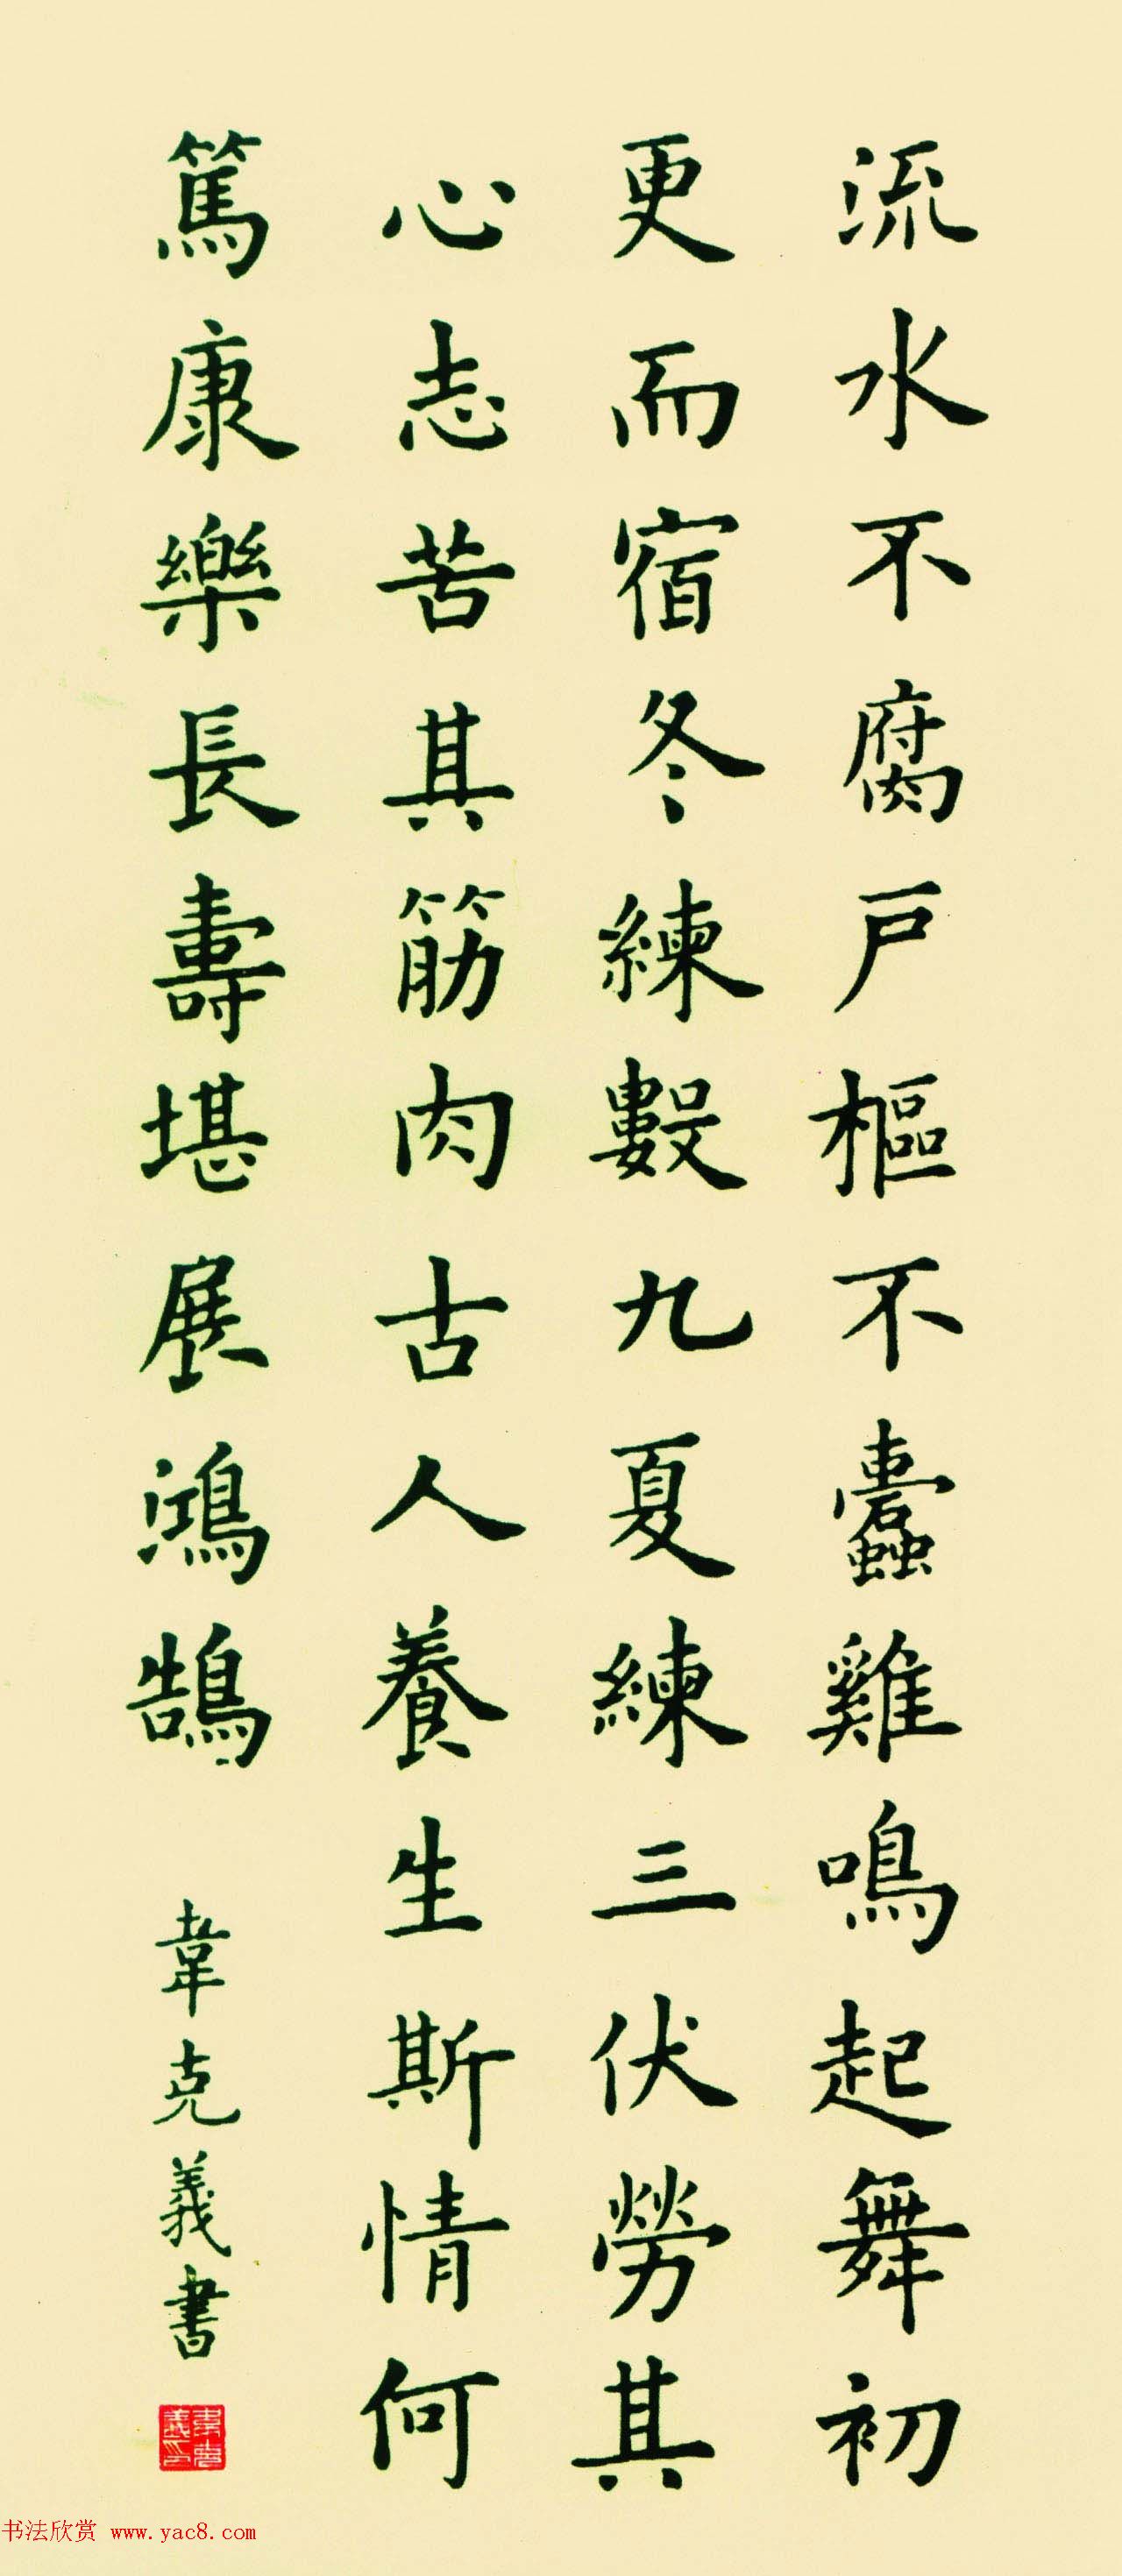 流水不腐戶樞不蠹雞鳴起舞初
更而宿冬練數九夏練三伏勞其
心志苦其筋肉古人養生斯情何
篤康樂長壽堪展鴻鵠
韋克義書
韋克義印
书法欣赏 www.yac8.com